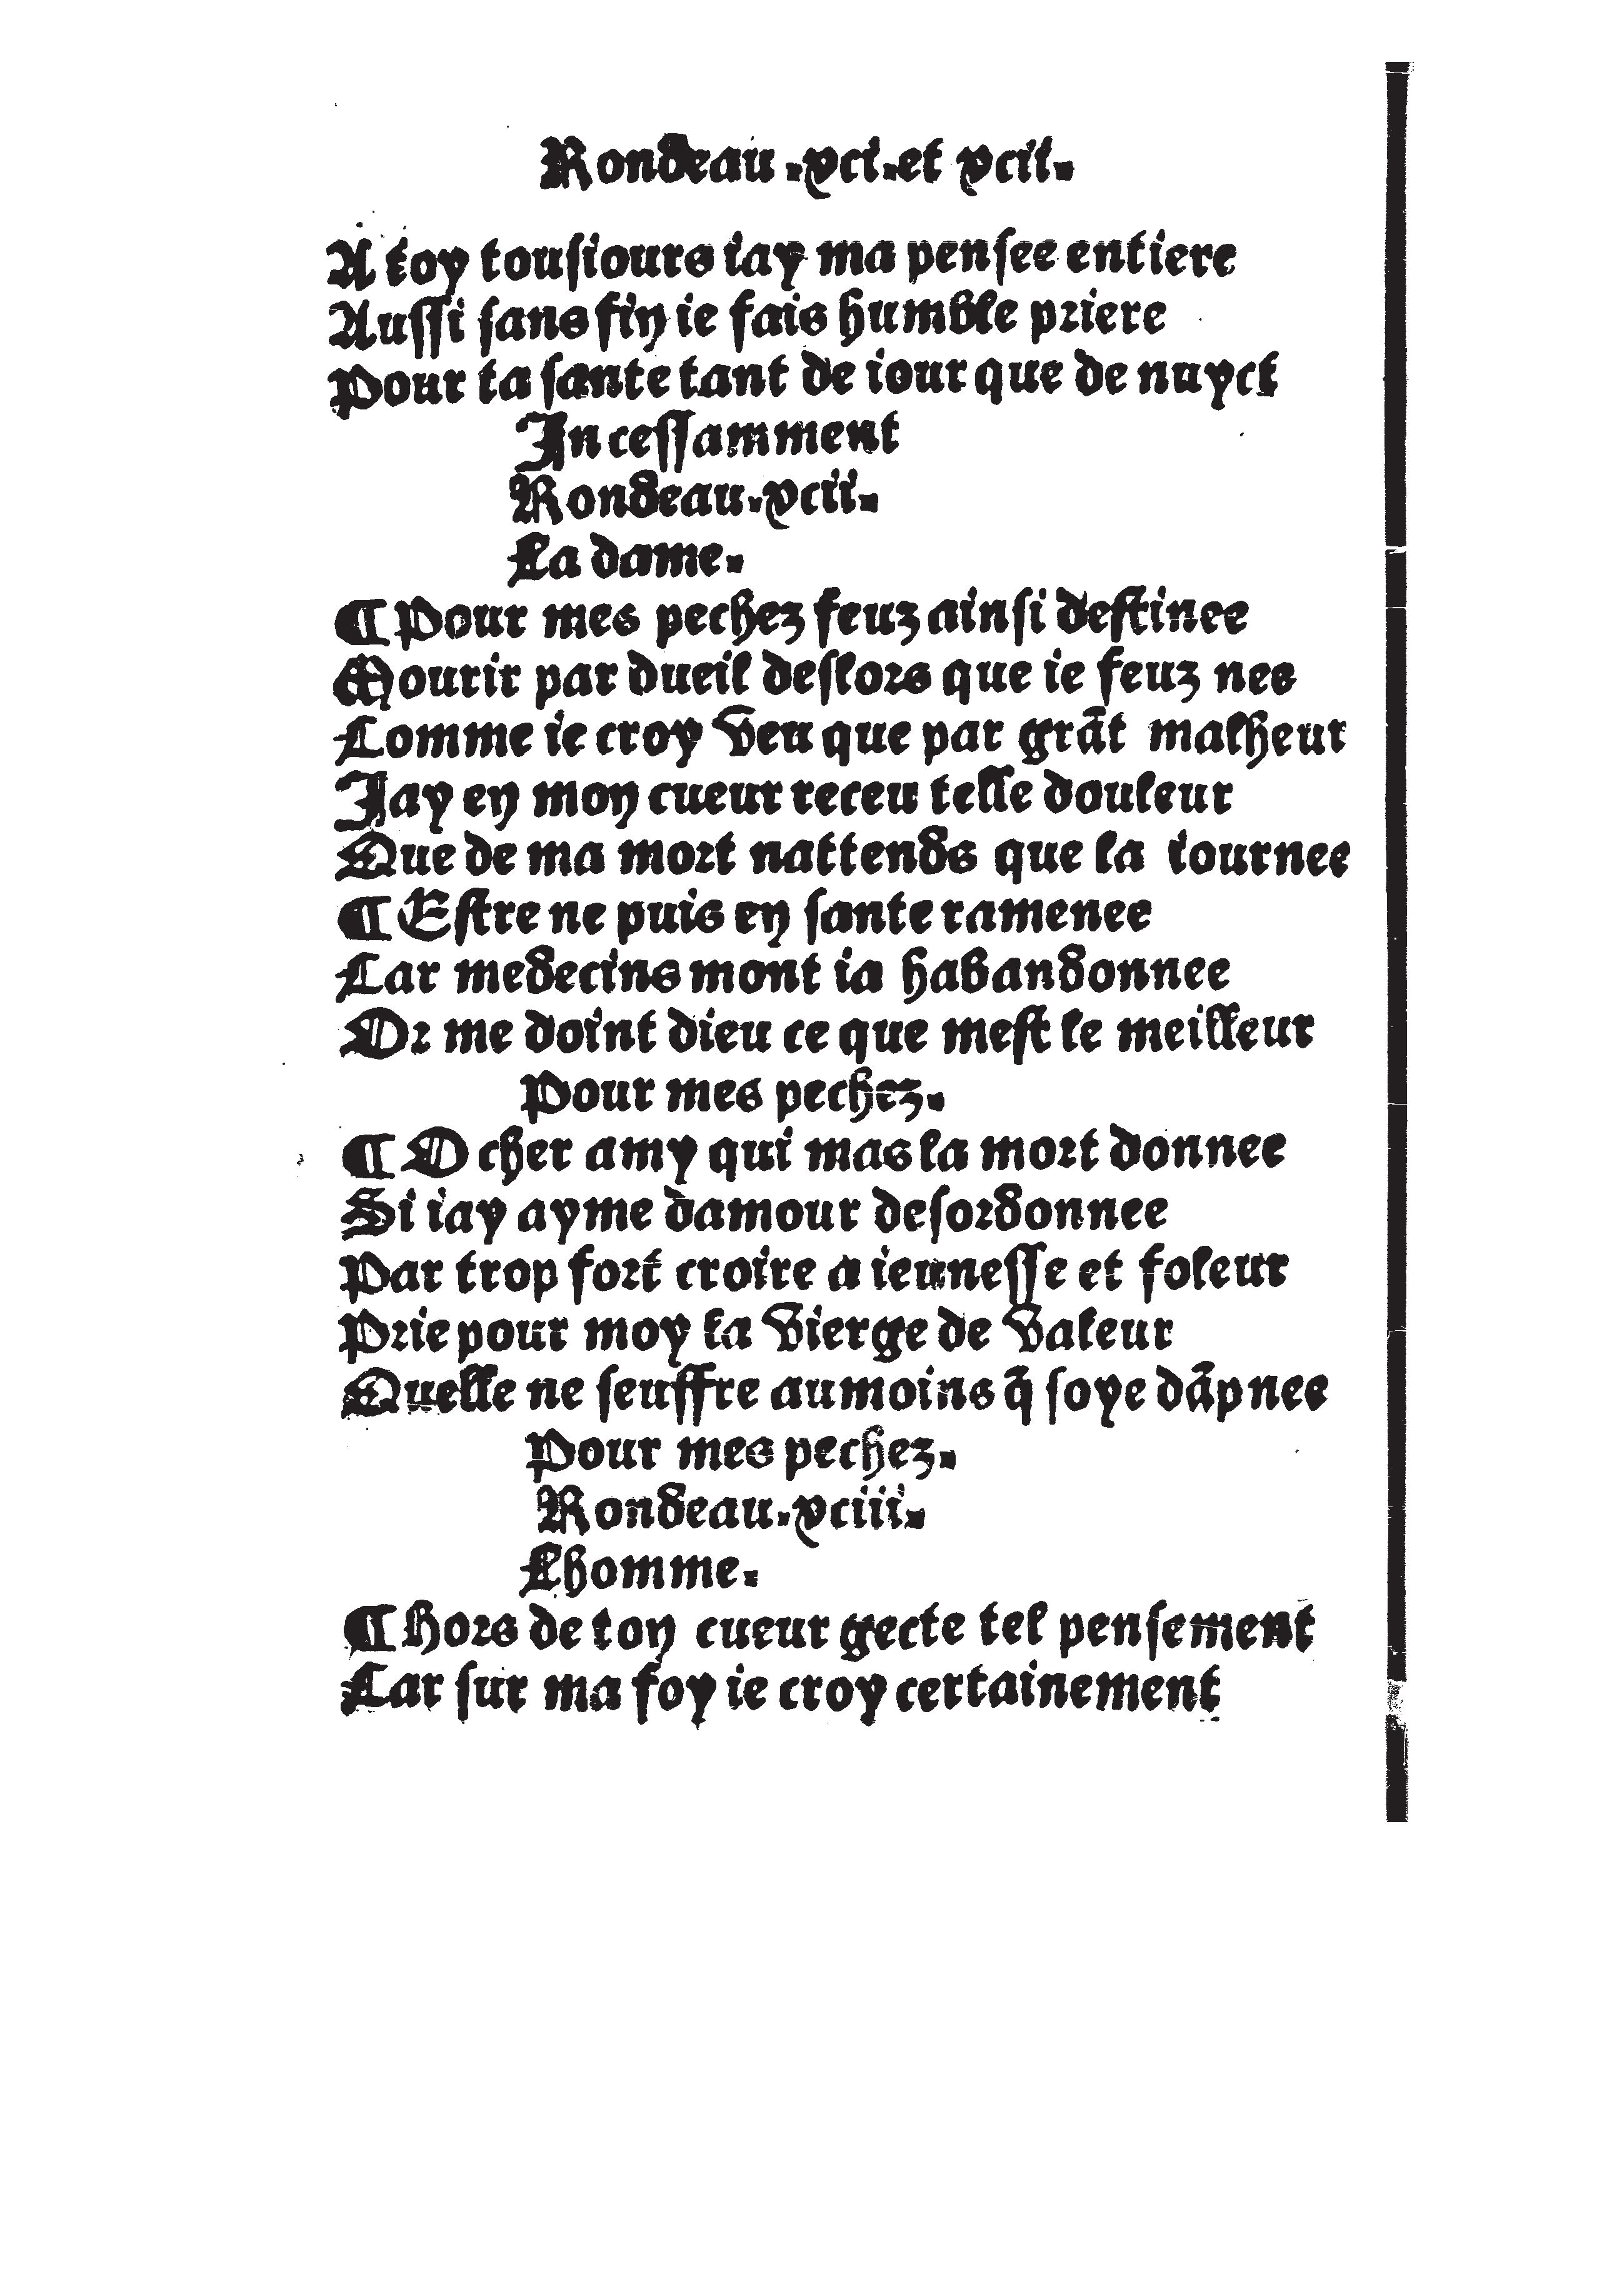 Rondeau .xci.et xcii.
A toy touſiours iay ma penſee entiere
Auſſi ſans fin ie fais humble priere
Pour ta ſante tant de iour que de nuyct
In ceſſamment
Rondeau.xcii.
La dame.
¶ Pour mes pechez feuz ainſi deſtinee
Mourir par dueil deſlors que ie feuz nee
Comme ie croy veu que par grāt malheur
Jay en mon cueur receu telle douleur
Que de ma mort nattends que la iournee
¶ Eſtre ne puis en ſante ramenee
Car medecins mont ia habandonnee
Or me doint dieu ce que meſt le meilleur
Pour mes pechez.
¶ O cher amy qui mas la mort donnee
Si iay ayme damour deſordonnee
Par trop fort croire a ieuneſſe et foleur
Prie pour moy la vierge de valeur
Quelle ne ſeuffre aumoins q̄ ſoye dāpnee
Pour mes pechez.
Rondeau.xciii.
Lhomme.
¶ Hors de ton cueur gecte tel penſement
Car ſur ma foy ie croy certainement